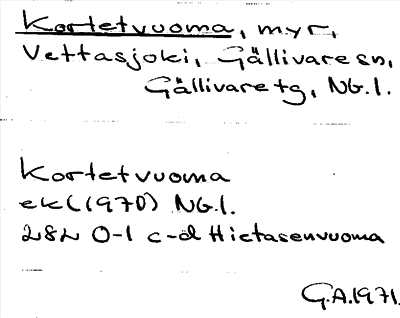 Kortetvuoma, myr,
Vettasjoki, Gällivare sn,
Gällivare tg, Nb.l.
Kortetvuoma
ek(1970) Nb.l.
28L 0-1 c-d Hietasenvuoma
G.A.1971.